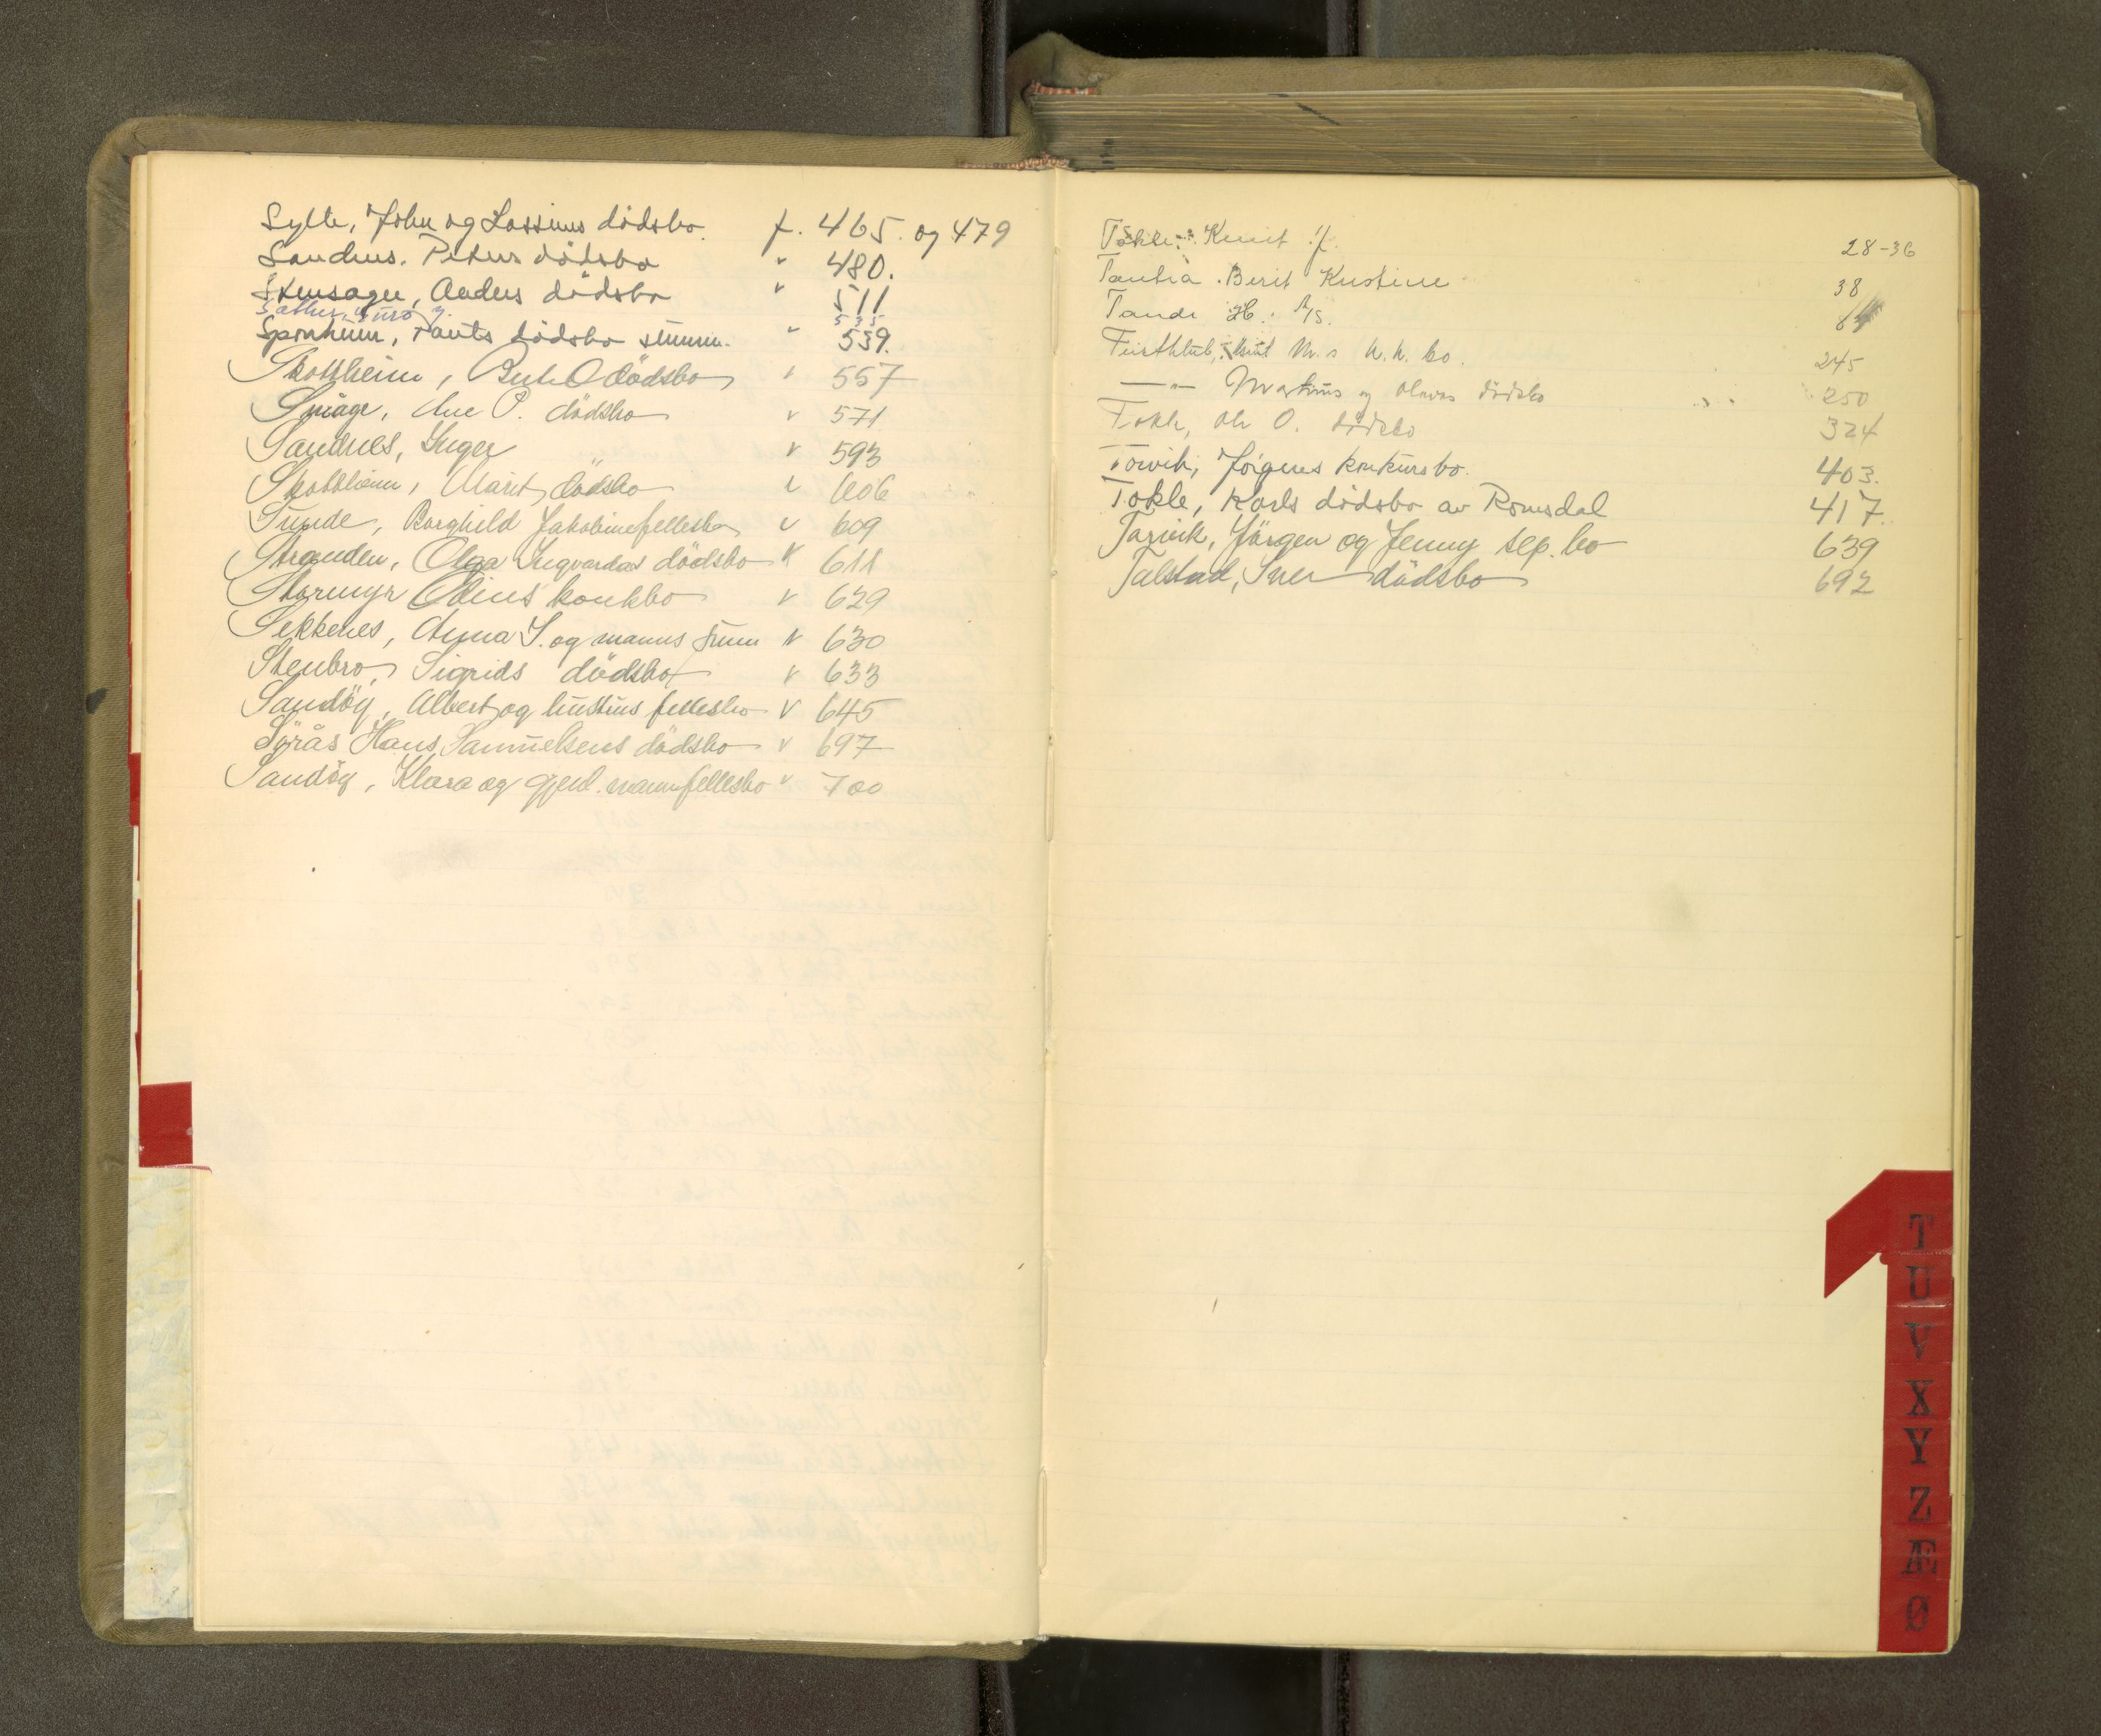 Sylte, John og Lassines dødsbo. f. 465. og 479
Sandnes. Peters dødsbo " 480.
Stensager, Anders dødsbo " 511
Sæther, Guro 535
Sponheim, dødsbo " 539.
Skottheim, Berte O dødsbo " 557
Småge, Ane P. dødsbo " 571
Sandnes, Inger " 593
Skottheim, Marit, dødsbo " 606
Sunde, Borghild Jakobine fellesbo " 609
Stranden, Olga Ingvardas dødsbo " 611
Stormyr Odins konkbo " 629
Sekkenes, Anna S. og manns " 630
Stenbro, Sigrids dødsbo " 633
Sandøy, Albert og hustrus fellesbo " 645
Sørås Hans Samuelsens dødsbo " 697
Sandøy, Klara og gjenl. mann fellesbo " 700
Tokle Knut 28-36
Berit Kristine 38
Tande A/S.
245
—"— Martinus og Olavas dødsbo 250
Tokle, Ole O. dødsbo 324
Torvik, Jørgens konkursbo. 403.
Tokle, Karls dødsbo av Romsdal 417.
Torvik, Jørgen og Jenny sep. bo 639
Talstad, Iver dødsbo 692
T
U
V
X
Y
Z
Æ
Ø